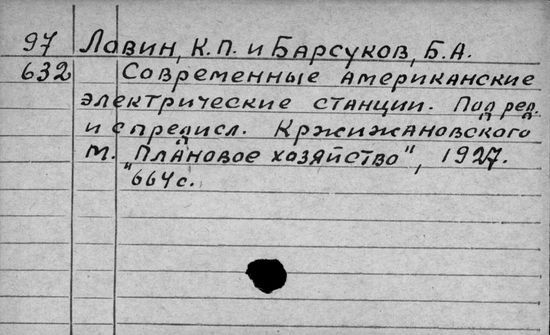 97 Ловин, К.П. и Барсуков, Б.А.
632 Современные американские
электрические станции. Под ред.
и с предисл. Кржижановского
М. "Плановое хозяйство", 1927.
664 с.